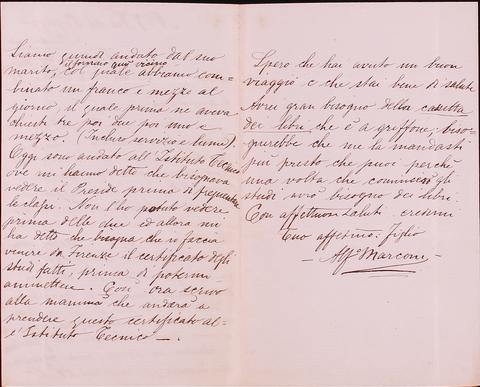 Siamo quindi andato dal suo
il fornaio quì vicino
marito, col quale abbiamo com=
binato un franco e mezzo al
giorno il quale prima ne aveva
chiesti tre poi due poi uno e
mezzo. (Incluso servizio e lume).
Oggi sono andato all'Istituto Tecnico
ove mi hanno detto che bisognava
vedere il Preside prima di frequentare
le classi. Non l'ho potuto vedere
prima delle due ed allora mi
ha detto che bisogna che io faccia
venire da Firenze il certificato degli
studi fatti, prima di potermi
ammettere. Così ora scrivo
alla mamma che andarà a
prendere questo certificato al=
l'Istituto Tecnico —.
Spero che hai avuto un buon
viaggio e che stai bene di salute
Avrei gran bisogno della casetta
dei libri che è a Griffone, biso=
gnerebbe che me la mandasti
più presto che puoi perchè
una volta che comincio gli
studi avrò bisogno dei libri.
Con affettuosi saluti credimi
tuo affesimo: figlio
— Alfo Marconi —